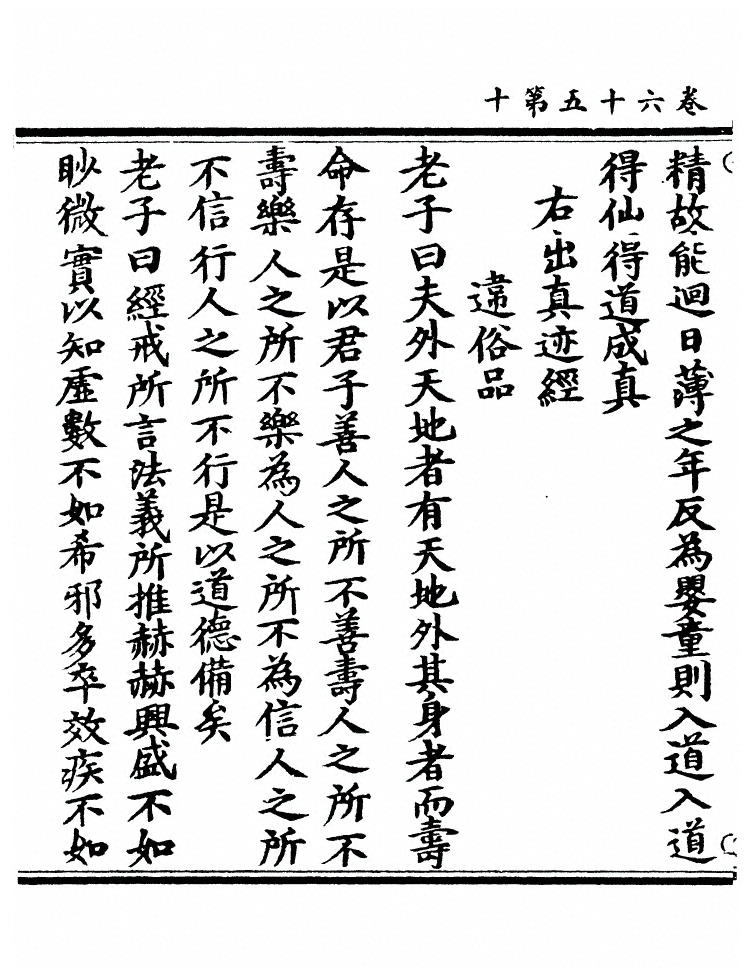 卷六十五第十
精故能迴日薄之年反為嬰童則入道入道
得仙得道成真
右出真迹經
違俗品
老子曰夫外天地者有天地外其身者而壽
命存是以君子善人之所不善壽人之所不
壽樂人之所不樂為人之所不為信人之所
不信行人之所不行是以道德備矣
老子曰經戒所言法義所推赫赫興盛不如
眇微實以知虛數不如希邪多卒效疾不如